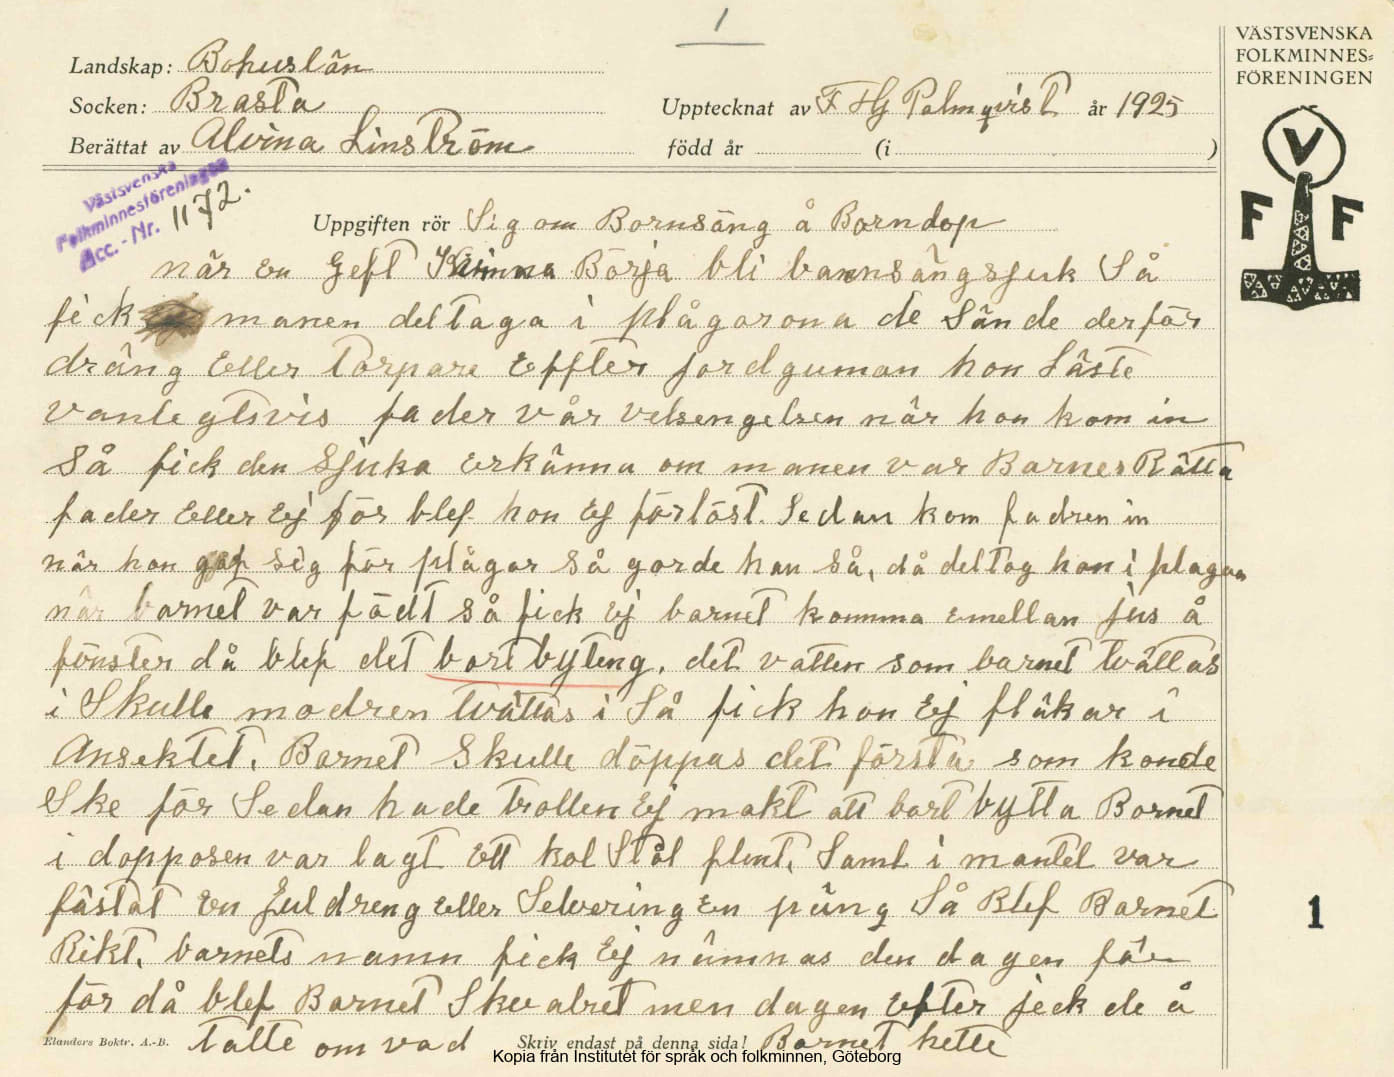 1
VÄSTSVENSKA
FOLKMINNES=
FÖRENINGEN
Landskap: Bohuslän
Socken: Brasta
Upptecknat av F Hj Palmqvist år 1925
Berättat av Alvina Linström född år (i )
V
F F
Västsvenska
Folkminnesföreningen
Acc. - Nr. 1172.
Uppgiften rör Sig om Bornsäng å Borndop
när en Geft Kvinna Börja bli barnsängsjuk Så
fick manen deltaga i plågorona de Sände derför
dräng Eller Torpare Effter jordguman hon Läste
vanlegtsvis fader vår velsengelsen när hon kom in
Så fick den Sjuka Erkänna om manen var Barnes Rätta
fader Eller Ej för blef hon Ej förlöst. Sedan kom fadren in
när hon gaf sig för plågor Så gorde han Så, då deltog han i plagan
när barnet var födt så fick Ej barnet komma emellan jus å
fönster då blef det bortbyteng, det vatten som barnet tvättas
i Skulle modren tvättas i Så fick hon Ej fläkar i
Ansektet, Barnet Skulle döppas det första som konde
Ske för Sedan hade trollen Ej makt att bort bytta Bornet
i dopposen var lagt Ett kol Stål flint, Samt i mantel var
fästat en Guldreng eller Selvering En päng Så Blef Barnet
Rikt, barnets namn fick Ej nämnas den dagen för
för då blef Barnet Skvalret men dagen Efter jeck de å
talte om vad Barnet hette
Elanders Boktr. A.-B.
Skriv endast på denna sida!
Kopia från Institutet för språk och folkminnen, Göteborg
1